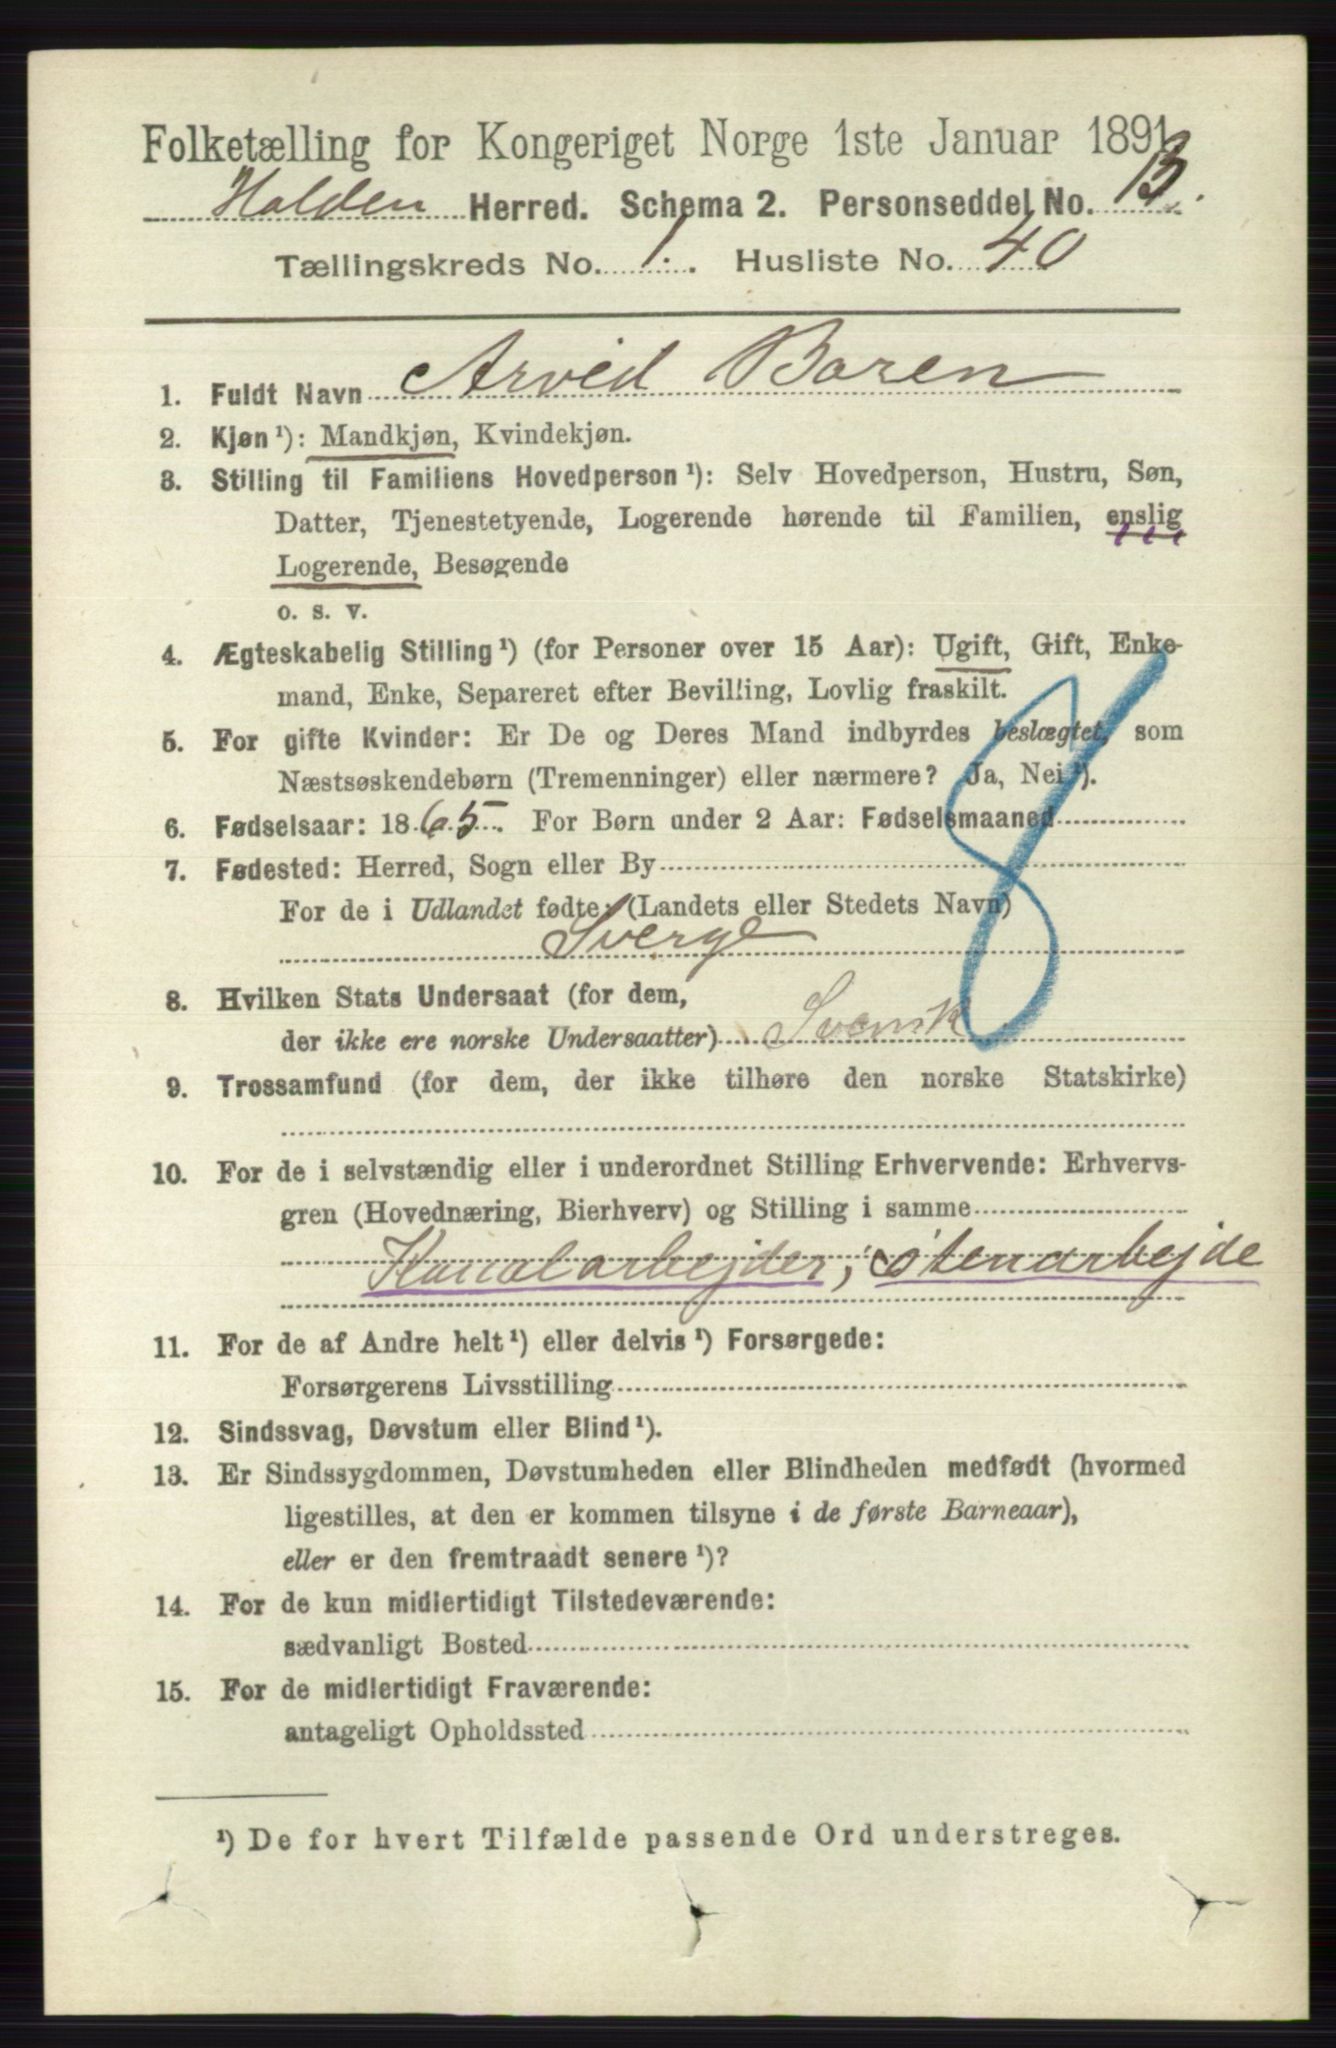 Folketælling for Kongeriget Norge 1ste Januar 1891.
Holden Herred. Schema 2. Personseddel No. 13.
Tællingskreds No. 1. Husliste No. 40
1. Fuldt Navn Arvid Boren
2. Kjøn¹): Mandkjøn, Kvindekjøn.
3. Stilling til Familiens Hovedperson¹): Selv Hovedperson, Hustru, Søn,
Datter, Tjenestetyende, Logerende hørende til Familien, enslig
Logerende, Besøgende
o. s. v.
4. Ægteskabelig Stilling¹) (for Personer over 15 Aar): Ugift, Gift, Enke-
mand, Enke, Separeret efter Bevilling, Lovlig fraskilt.
5. For gifte Kvinder: Er De og Deres Mand indbyrdes beslægtet, som
Næstsøskendebørn (Tremenninger) eller nærmere? Ja, Nei¹).
6. Fødselsaar: 1865. For Børn under 2 Aar: Fødselsmaaned
7. Fødested: Herred, Sogn eller By
For de i Udlandet fødte: (Landets eller Stedets Navn)
Sverge
8. Hvilken Stats Undersaat (for dem,
der ikke ere norske Undersaatter) Svensk
8
9. Trossamfund (for dem, der ikke tilhøre den norske Statskirke)
10. For de i selvstændig eller i underordnet Stilling Erhvervende: Erhvervs-
gren (Hovednæring, Bierhverv) og Stilling i samme
Kanalarbejder, Stenarbejde
11. For de af Andre helt¹) eller delvis¹) Forsørgede:
Forsørgerens Livsstilling
12. Sindssvag, Døvstum eller Blind¹).
13. Er Sindssygdommen, Døvstumheden eller Blindheden medfødt (hvormed
ligestilles, at den er kommen tilsyne i de første Barneaar),
eller er den fremtraadt senere¹)?
14. For de kun midlertidigt Tilstedeværende:
sædvanligt Bosted
15. For de midlertidigt Fraværende:
antageligt Opholdssted
¹) De for hvert Tilfælde passende Ord understreges.